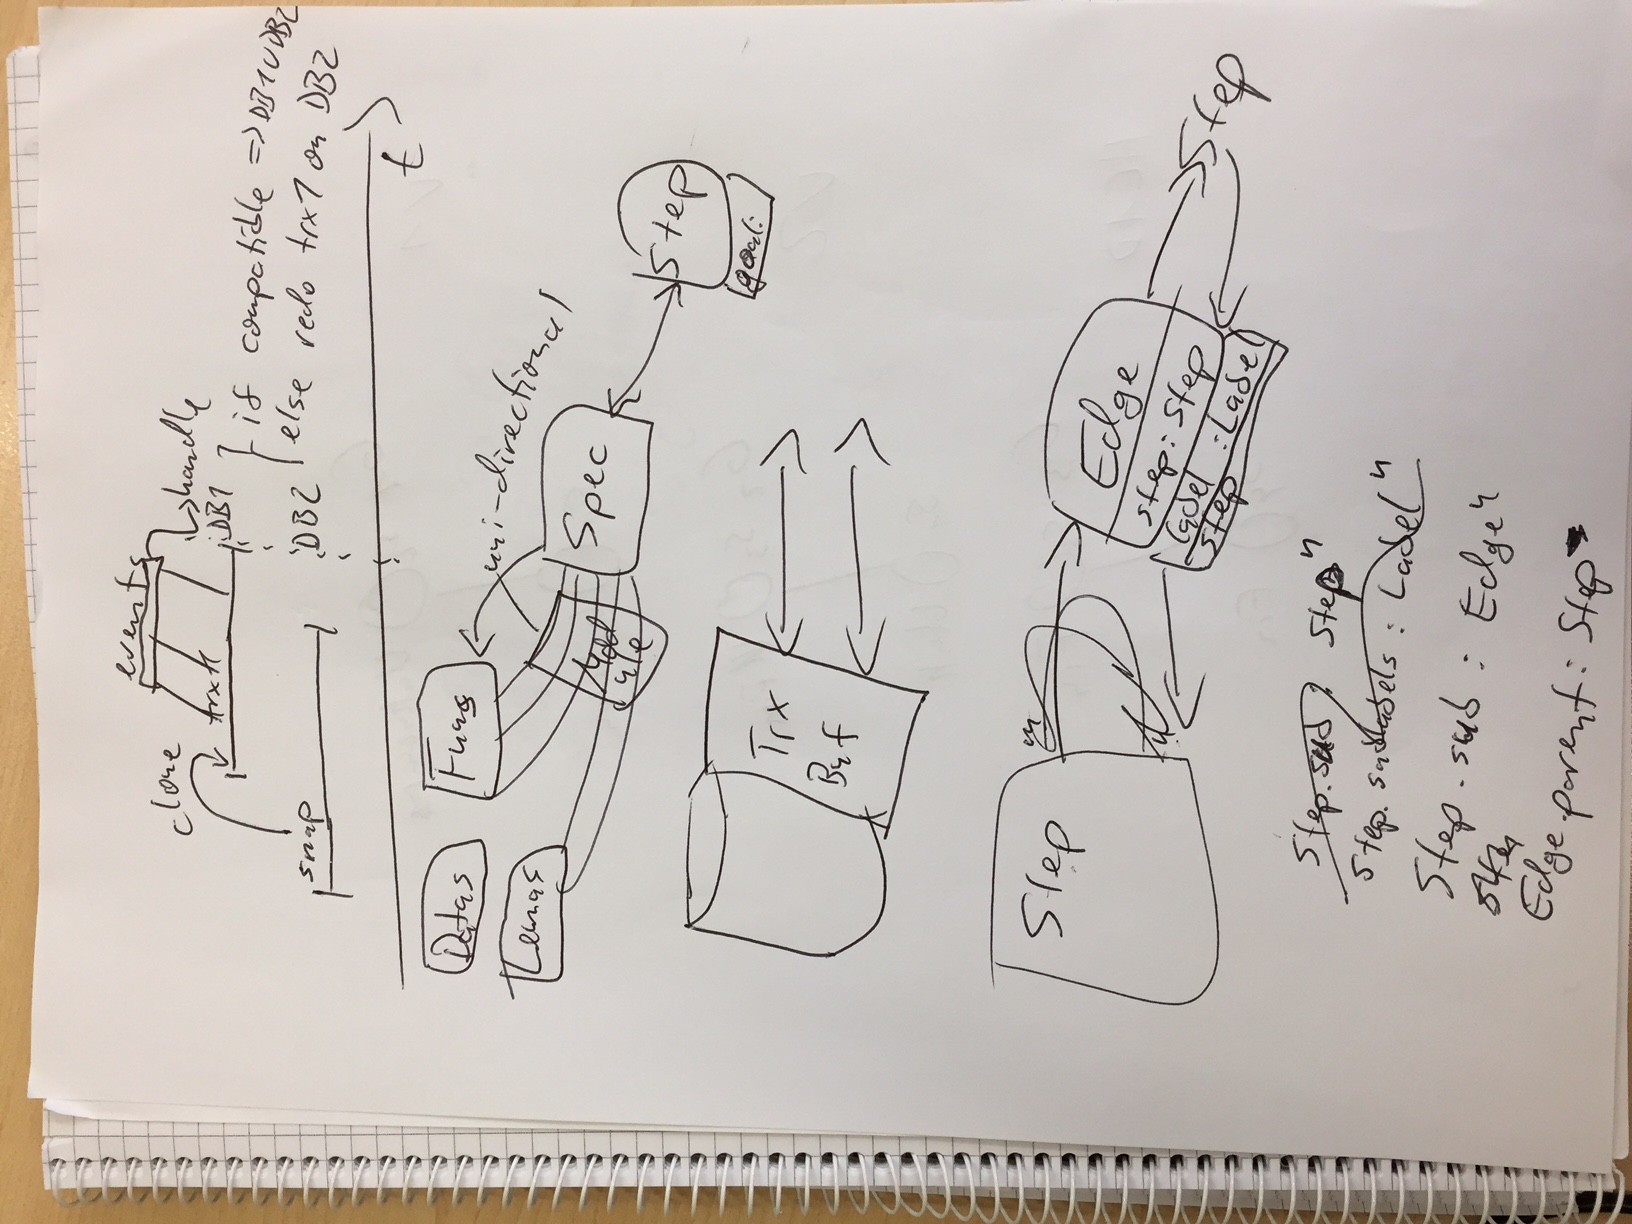 events
clone
handle
trx1
DB1
if compatible => DB1∪DB2
snap
DB2
else redo trx1 on DB2
t
Datas
Funs
uni-directional
Lemas
Spec
Add
Step
goal:
Trx
Buf
Step
m
Edge
step: Step
label : Label
step
Step
Step.sub : Stepⁿ
Step.sublabels : Labelⁿ
Step.sub : Edgeⁿ
Edge.parent : Step